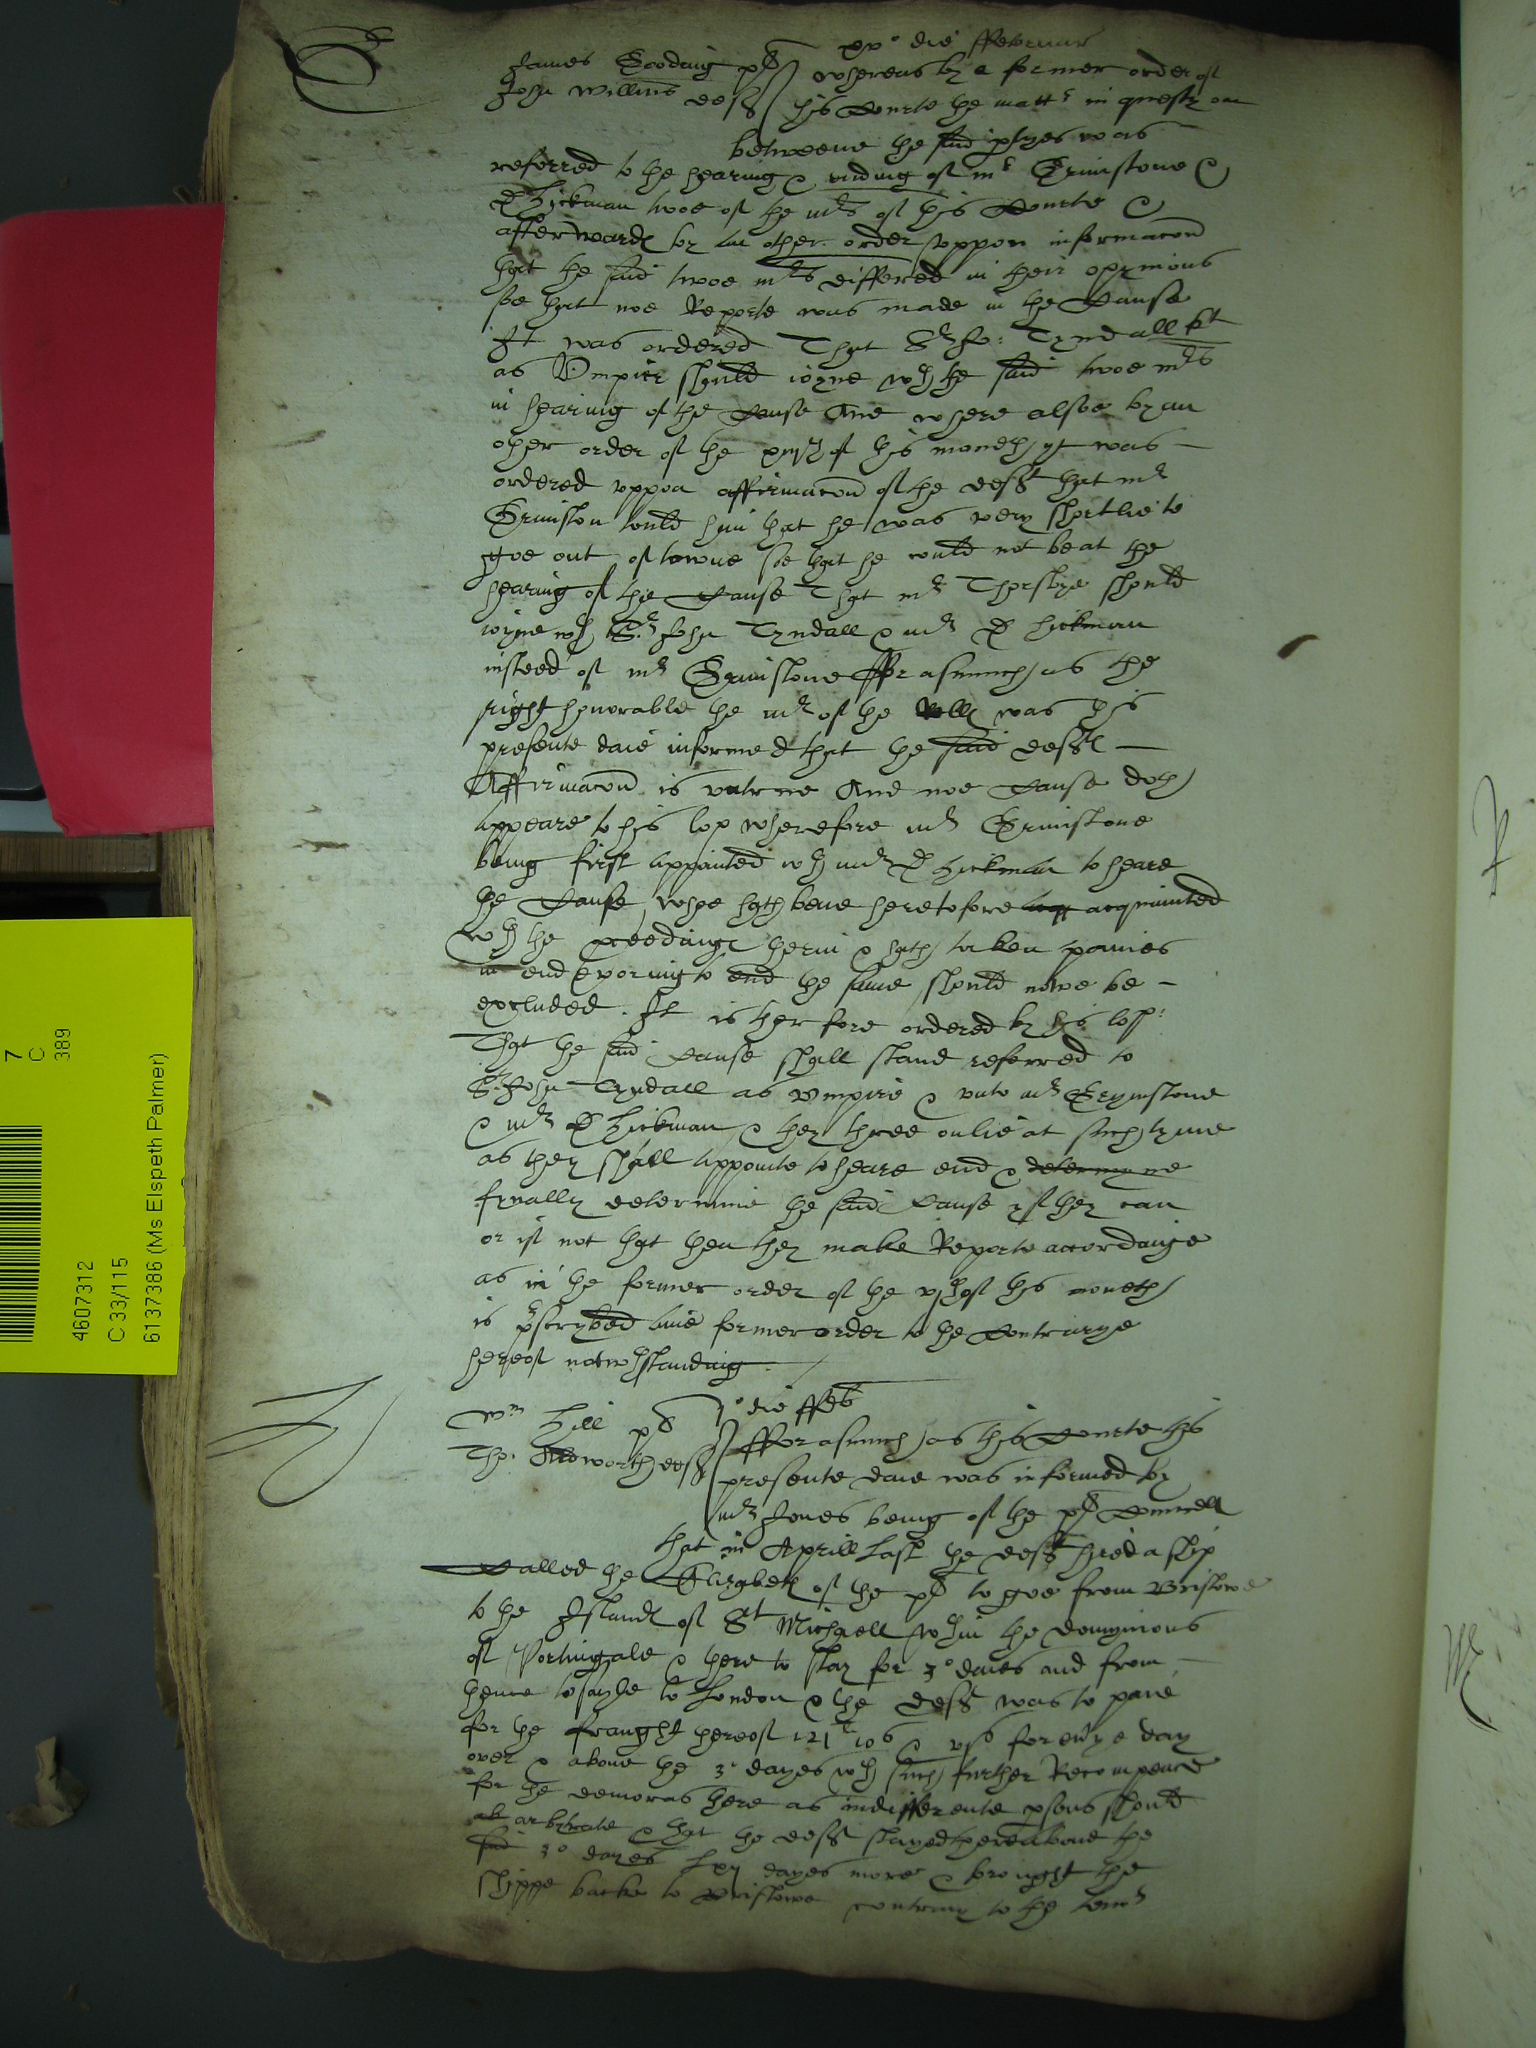 xv° die ffebruar
James Gooding pl whereas by a former order of
John Willms def this Courte the matter in question
betweene the said ptyes was
referred to the hearing & ending of mr Grimstone &
D Hickman twoe of the mrs of this Courte &
afterward by an other order uppon informacon
that the said twoe mrs differed in their opynions
soe that noe Reporte was made in the Cause
It was ordered That Sr Jo: Tyndall kt
as Vmpier should ioyne wth the said twoe mrs
in hearing of the Cause And where alsoe by an
other order of the of this moneth yt was
ordered uppon affirmacon of the deft that mr
Grimston tould him that he was very shortlie to
goe out of towne soe that he could not be at the
hearing of the Cause That mr Thorslye should
ioyne wth Sr John Tyndall & mr D Hickman
insteed of mr Grimstone fforasmuch as the
right honorable the mr of the Rolls was this
presente daie informed that the said deftes
Affirmacon is untrue And noe Cause doth
appeare to his lop wherefore mr Grimstone
being first appointed wth mr D Hickman to heare
the Cause whoe hath bene heretofore acquainted
wth the pceedings therin & hath taken paines
in endevoring to end the same should nowe be
excluded. It is therfore ordered by his losp:
That the said Cause shall stand referred to
Sr John Tyndall as vmpire & unto mr Grymstone
& mr D Hickman & they three onlie at such tyme
as they shall appointe to heare end & determyne
fynally determine the said Cause yf they can
or if not that then they make Reporte accordinge
as in the former order of the vth of this moneth
is pscrybed anie former order to the Contrarye
hereof notwthstanding.
7
C
389
4607312
C 33/115
6137386 (Ms Elspeth Palmer)
Wm Hill pl die ffebr
Tho: Aldworth def fforasmuch as this Courte this
presente daie was informed by
mr Jones being of the pl Councell
that in Aprill last the deft hired a ship
Called the Elizabeth of the pl to goe from Bristowe
to the Islands of St Michaell wthin the domynions
of Portingale & there to stay for 30 daies and from
thence to sayle to London & the deft was to paie
for the fraught thereof 121li 10s & vs for everye day
over & above the 30 dayes wth such further Recompence
for the demoras there as indifferente psons should
arbytrate & that the deft stayed there above the
said 30 dayes dayes more & brought the
shippe backe to Bristowe contrary to the